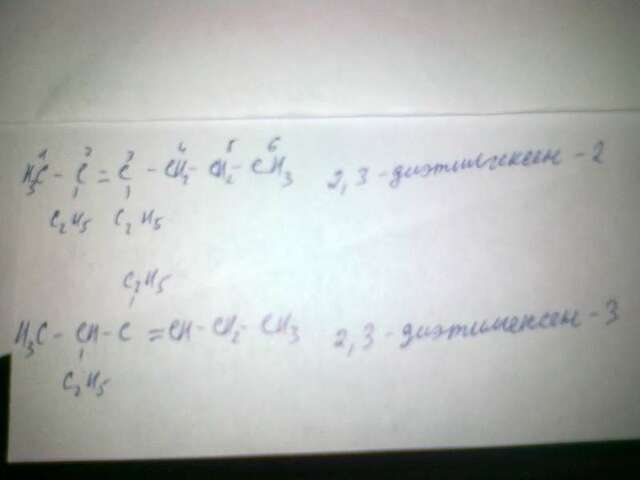 1 2 3 4 5 6
H₃C - C = C - CH₂ - CH₂ - CH₃ 2,3-диэтилгексен-2
C₂H₅ C₂H₅
C₂H₅
H₃C - CH - C = CH - CH₂ - CH₃ 2,3-диэтилгексен-3
C₂H₅